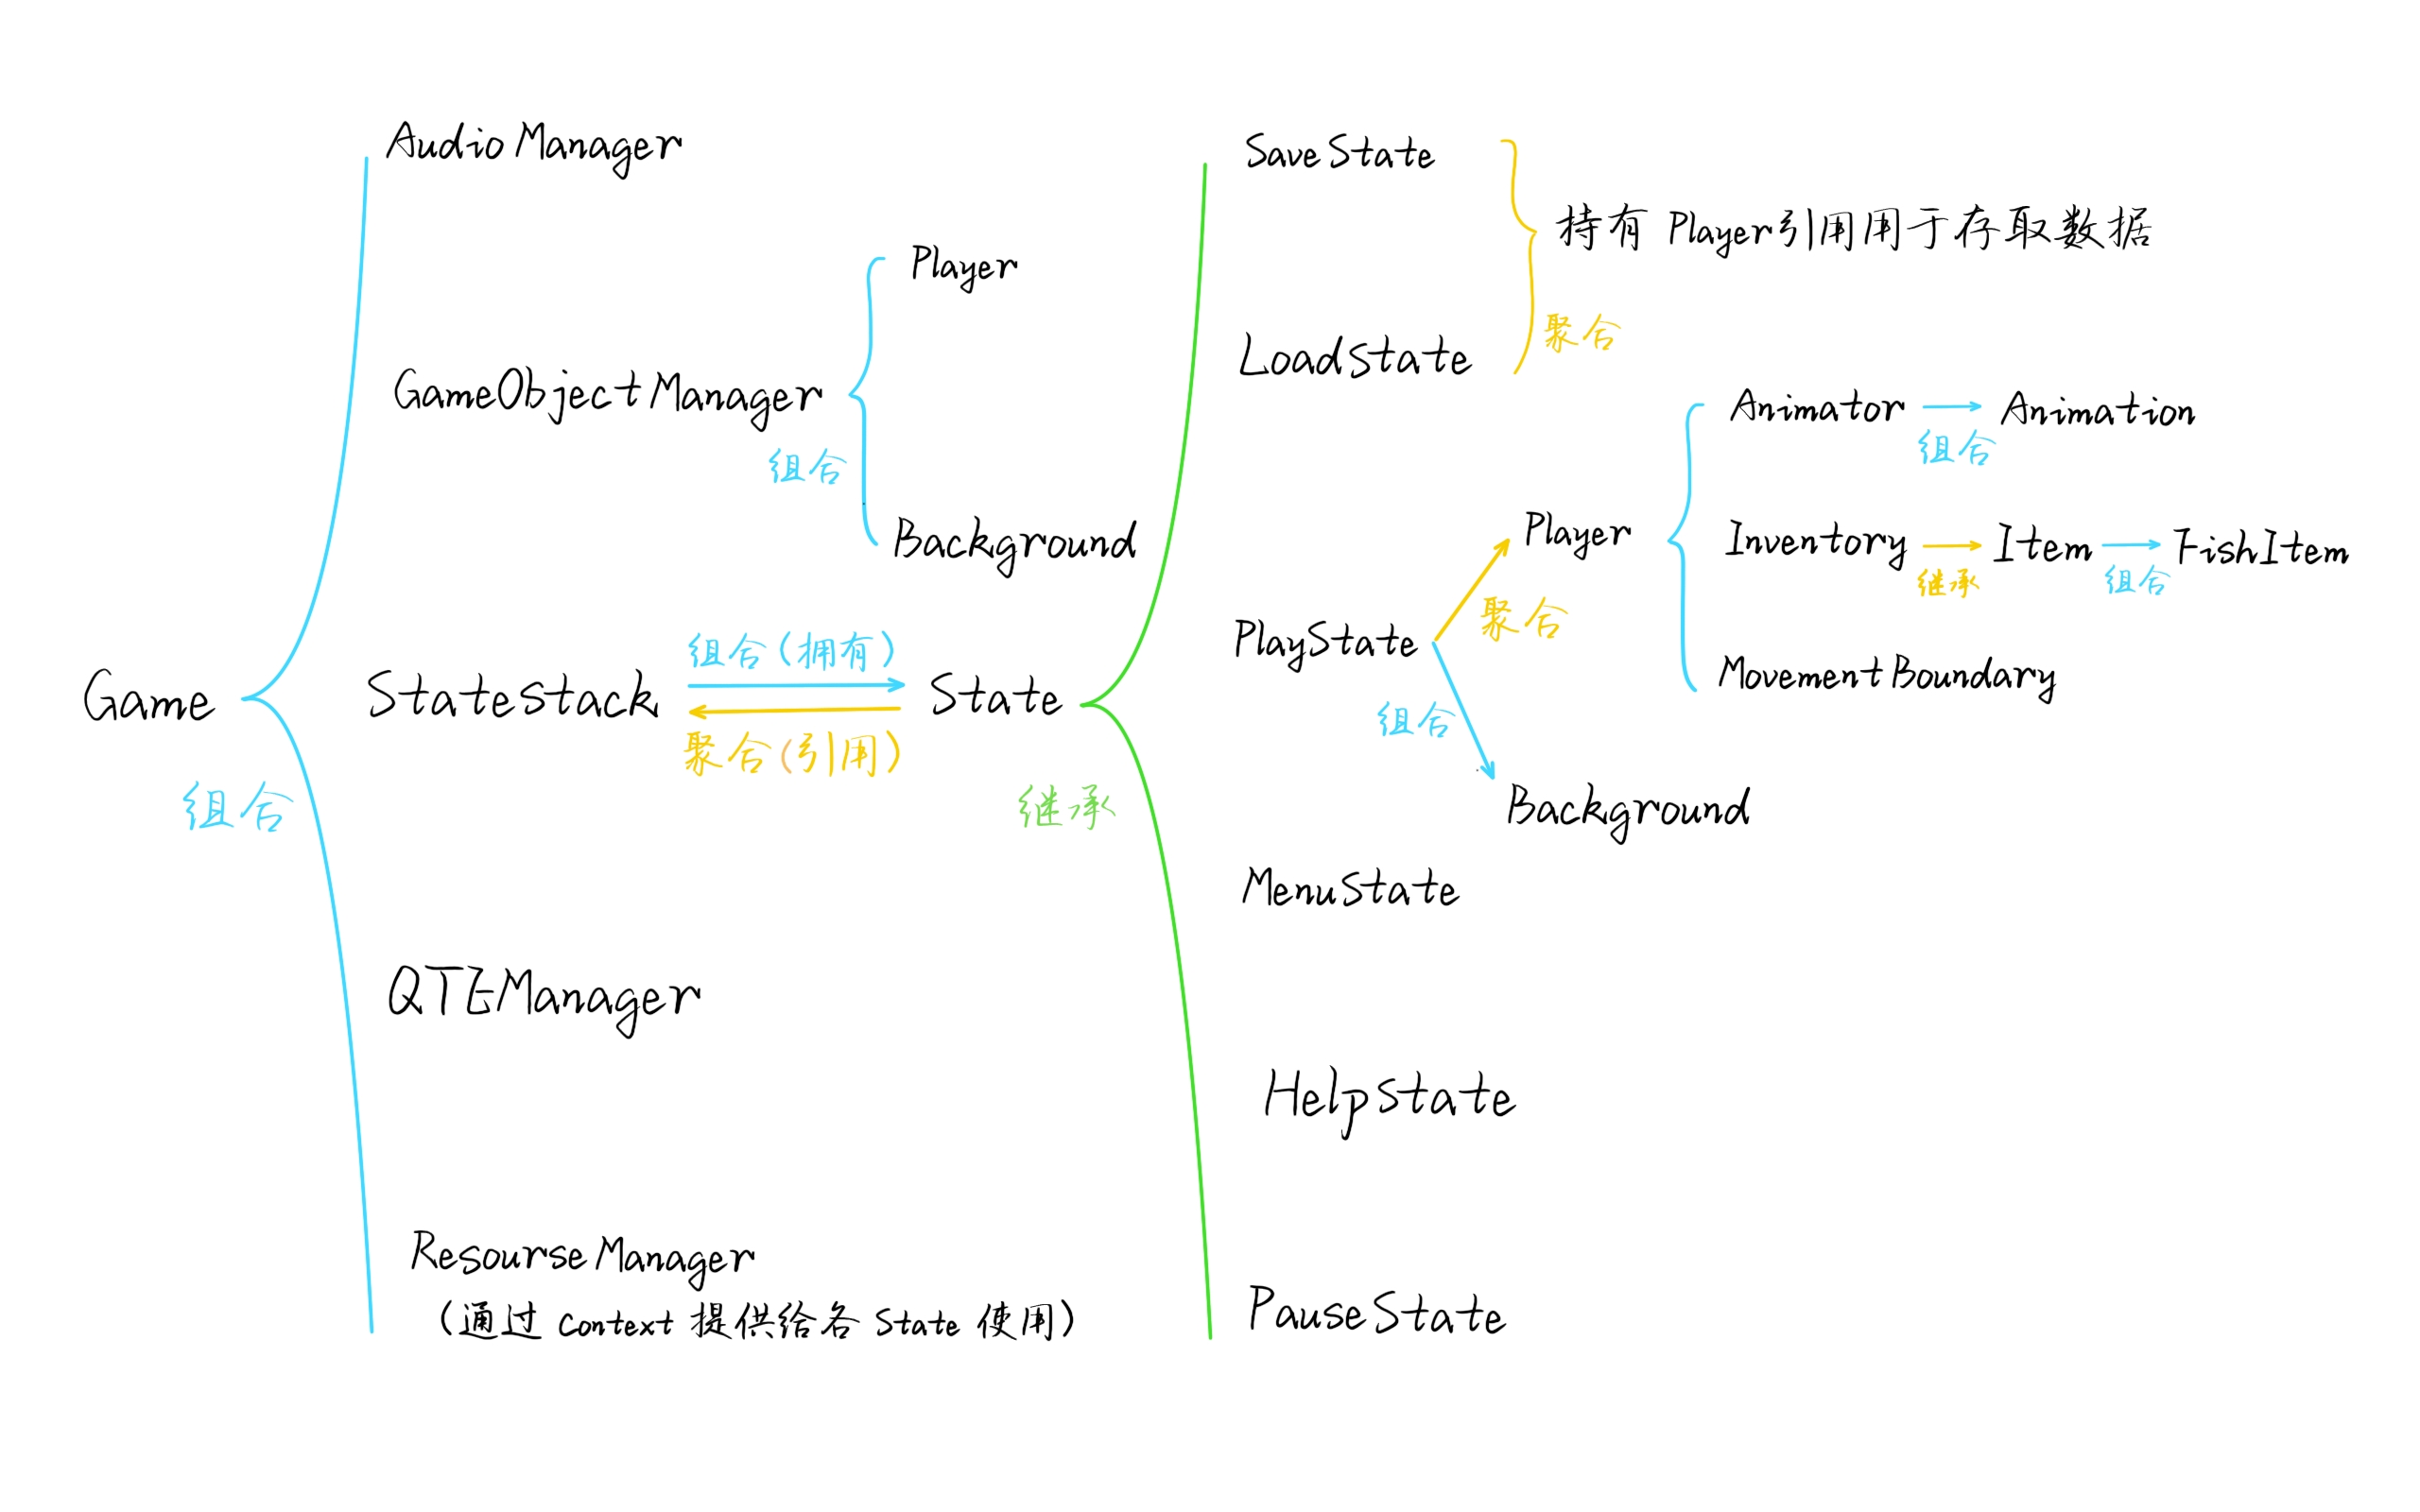 Game
组合
AudioManager
GameObjectManager
组合
Player
Background
Statestack
组合(拥有)
聚合(引用)
State
继承
QTEManager
ResourseManager
(通过 context 提供给各 state 使用)
SaveState
Loadstate
持有 Player引用用于存取数据
聚合
PlayState
聚合
组合
Player
Background
Animator
组合
Animation
Inventory
继承
Item
组合
FishItem
MovementBoundary
Menustate
Helpstate
PauseState